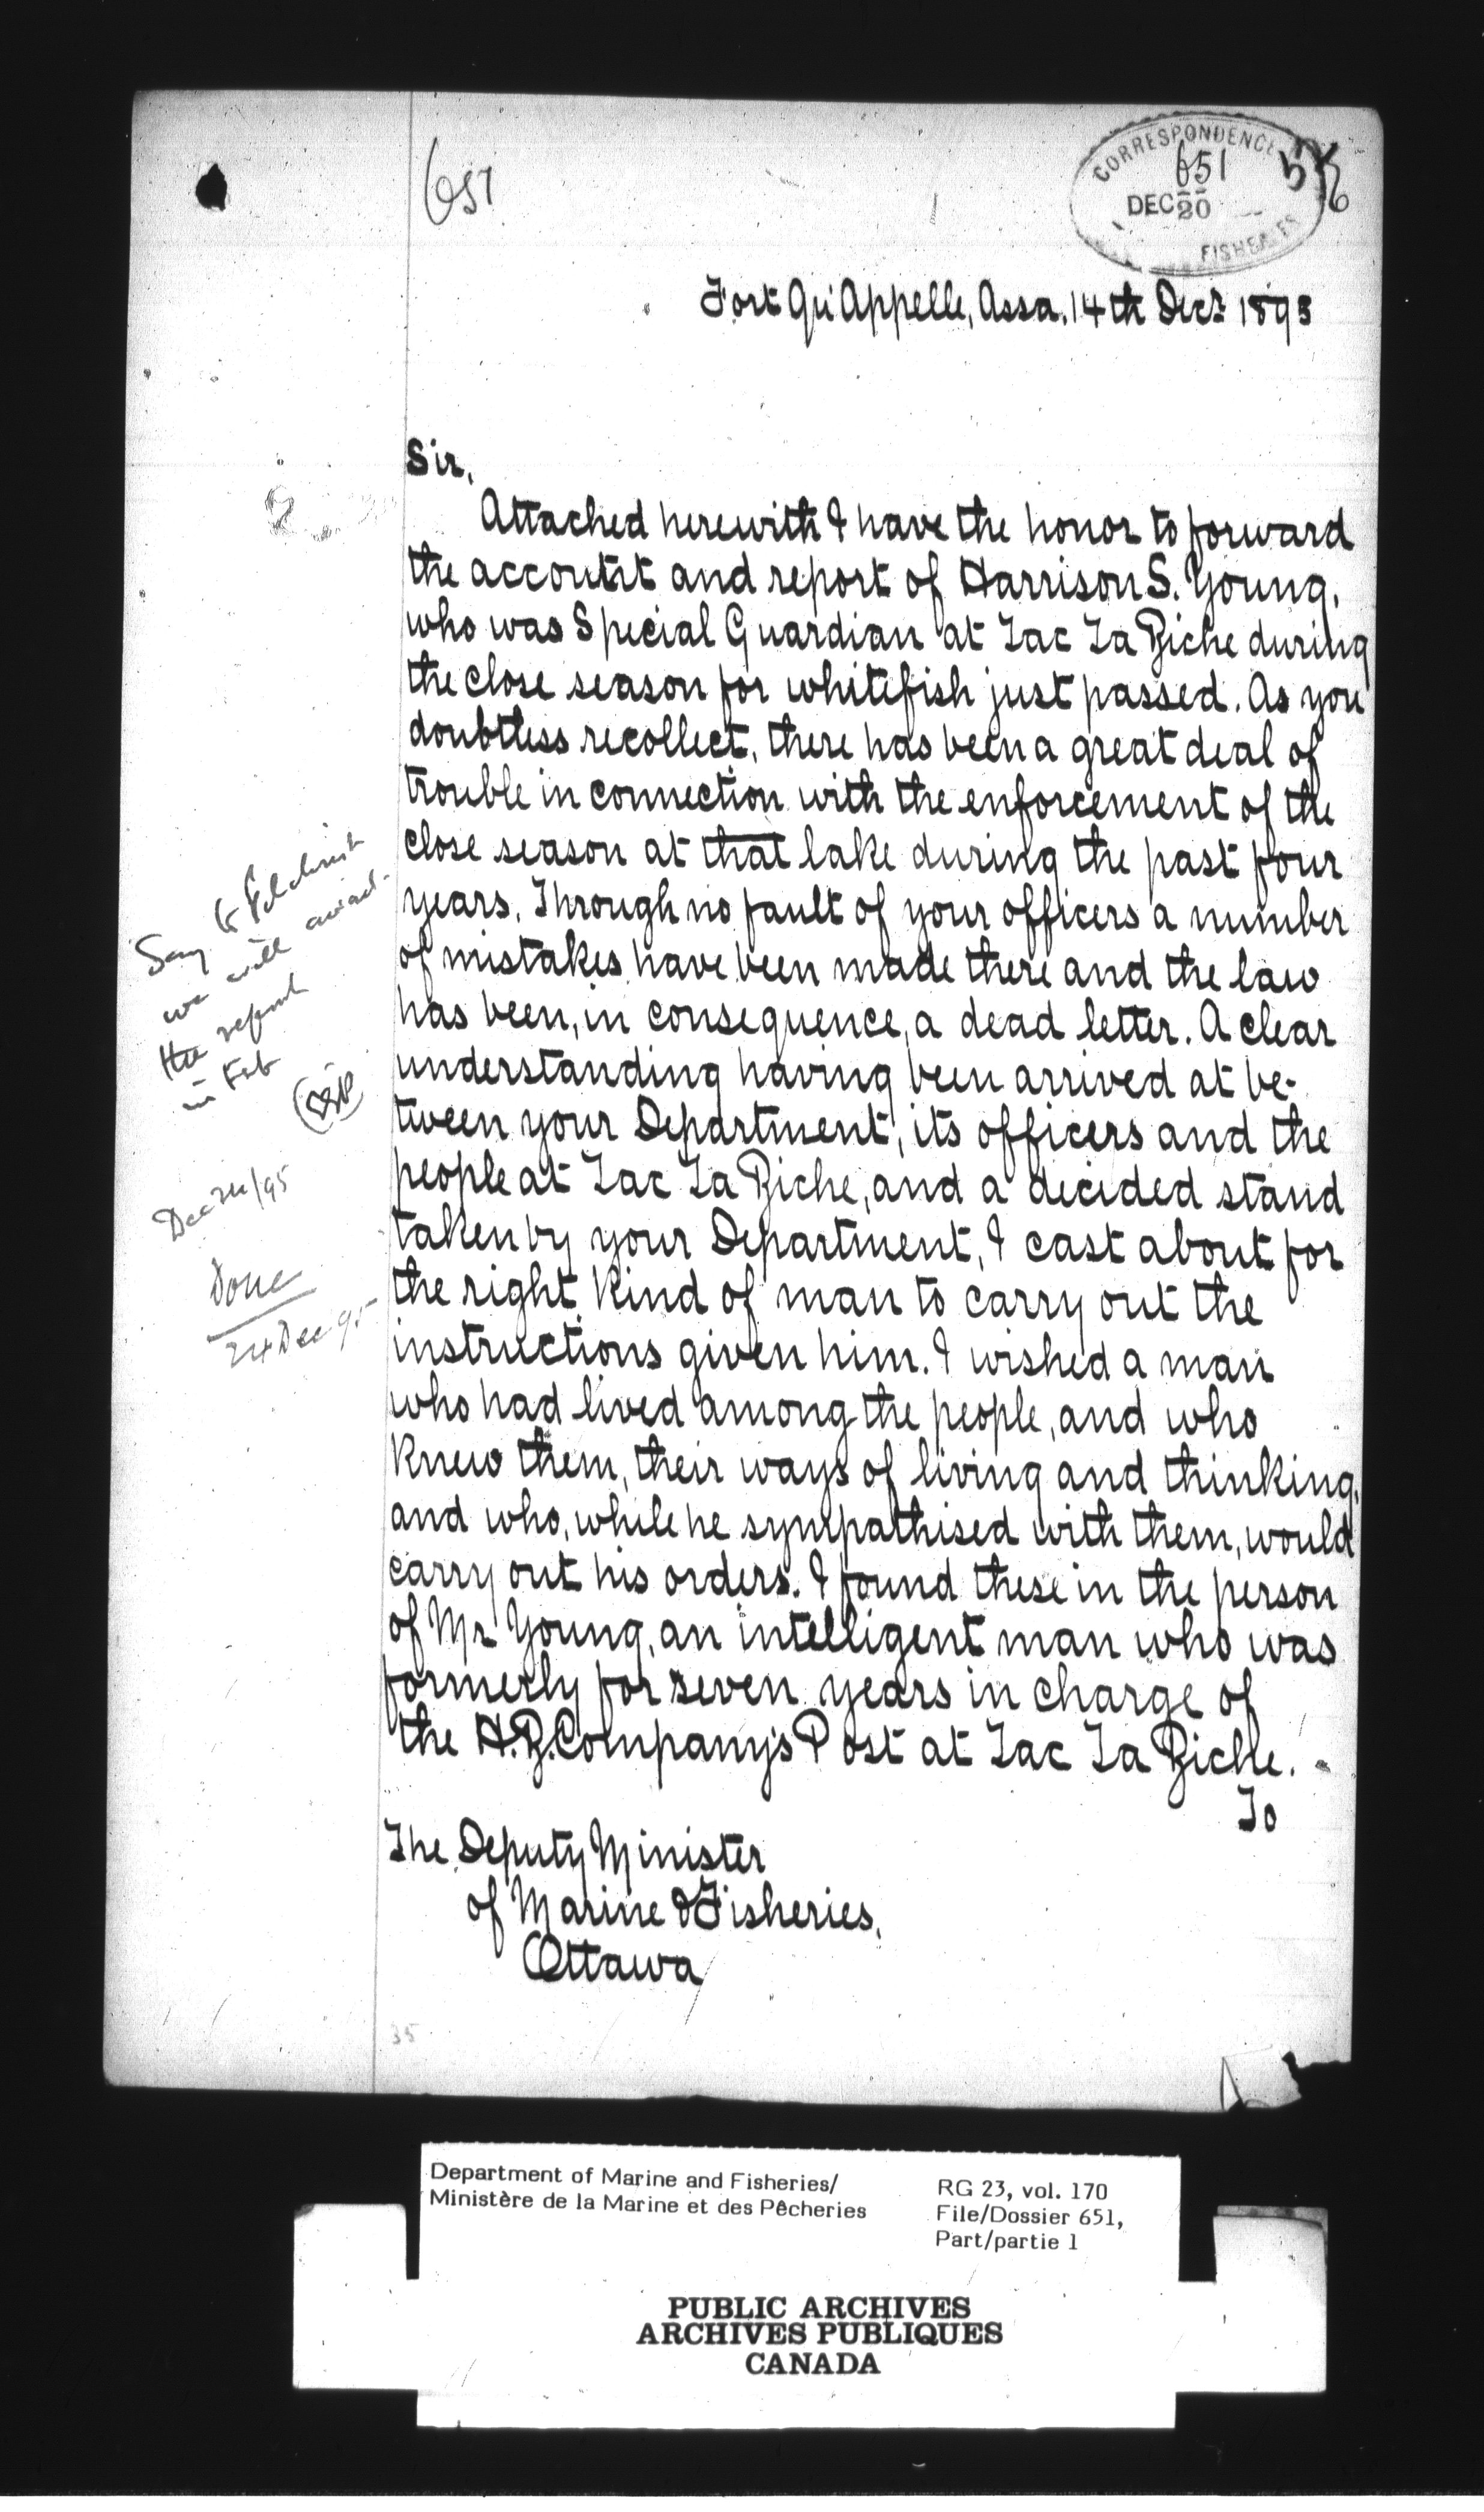 651
CORRESPONDENCE
651
DEC 20
FISHERIES
Fort Qu'Appelle, Assa. 14th Decr. 1895
Sir,
Attached herewith I have the honor to forward
the account and report of Harrison S. Young,
who was Special Guardian at Lac La Biche during
the close season for whitefish just passed. As you
doubtless recollect, there has been a great deal of
trouble in connection with the enforcement of the
close season at that lake during the past four
years. Through no fault of your officers a number
of mistakes have been made there and the law
has been, in consequence, a dead letter. A clear
understanding having been arrived at be-
tween your Department, its officers and the
people at Lac La Biche, and a decided stand
taken by your Department, I cast about for
the right kind of man to carry out the
instructions given him. I wished a man
who had lived among the people, and who
knew them, their ways of living and thinking,
and who, while he sympathised with them, would
carry out his orders. I found these in the person
of Mr Young, an intelligent man who was
formerly for seven years in charge of
the H.B. Company's Post at Lac La Biche.
To
The Deputy Minister
of Marine & Fisheries,
Ottawa
35
Say to
we will await
the report
in Feb
Dec 24/95
Done
24 Dec 95
Department of Marine and Fisheries/
Ministère de la Marine et des Pêcheries
RG 23, vol. 170
File/Dossier 651,
Part/partie 1
PUBLIC ARCHIVES
ARCHIVES PUBLIQUES
CANADA